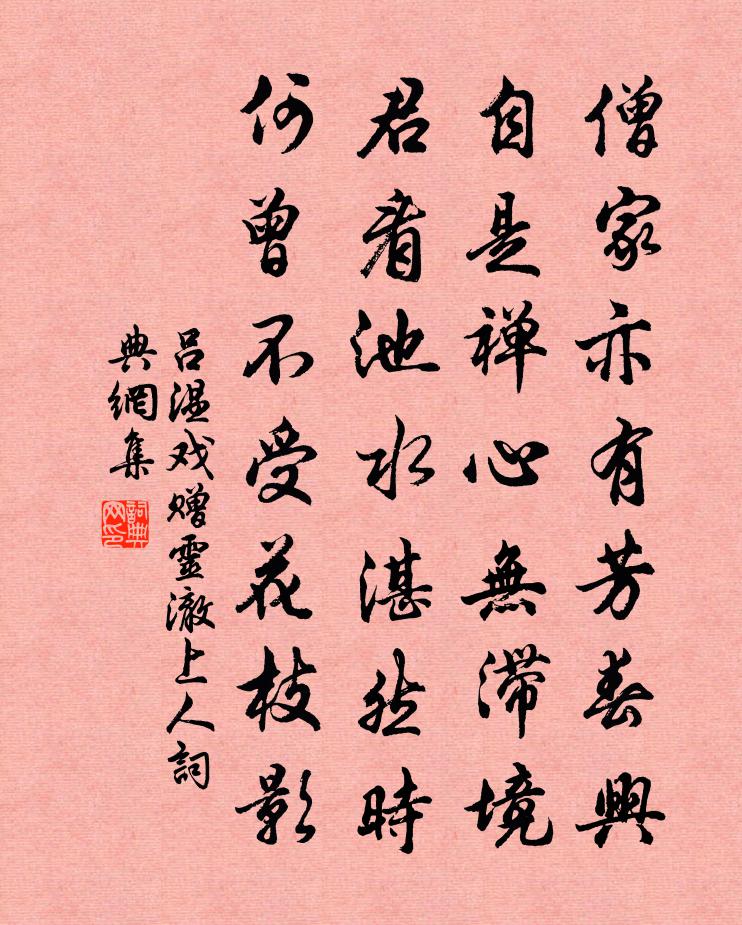 僧家亦有芳春興
自是禅心無滞境
君看池水湛然時
何曾不受花枝影
吕溫戏赠靈澈上人詞
典網集
詞典
网印